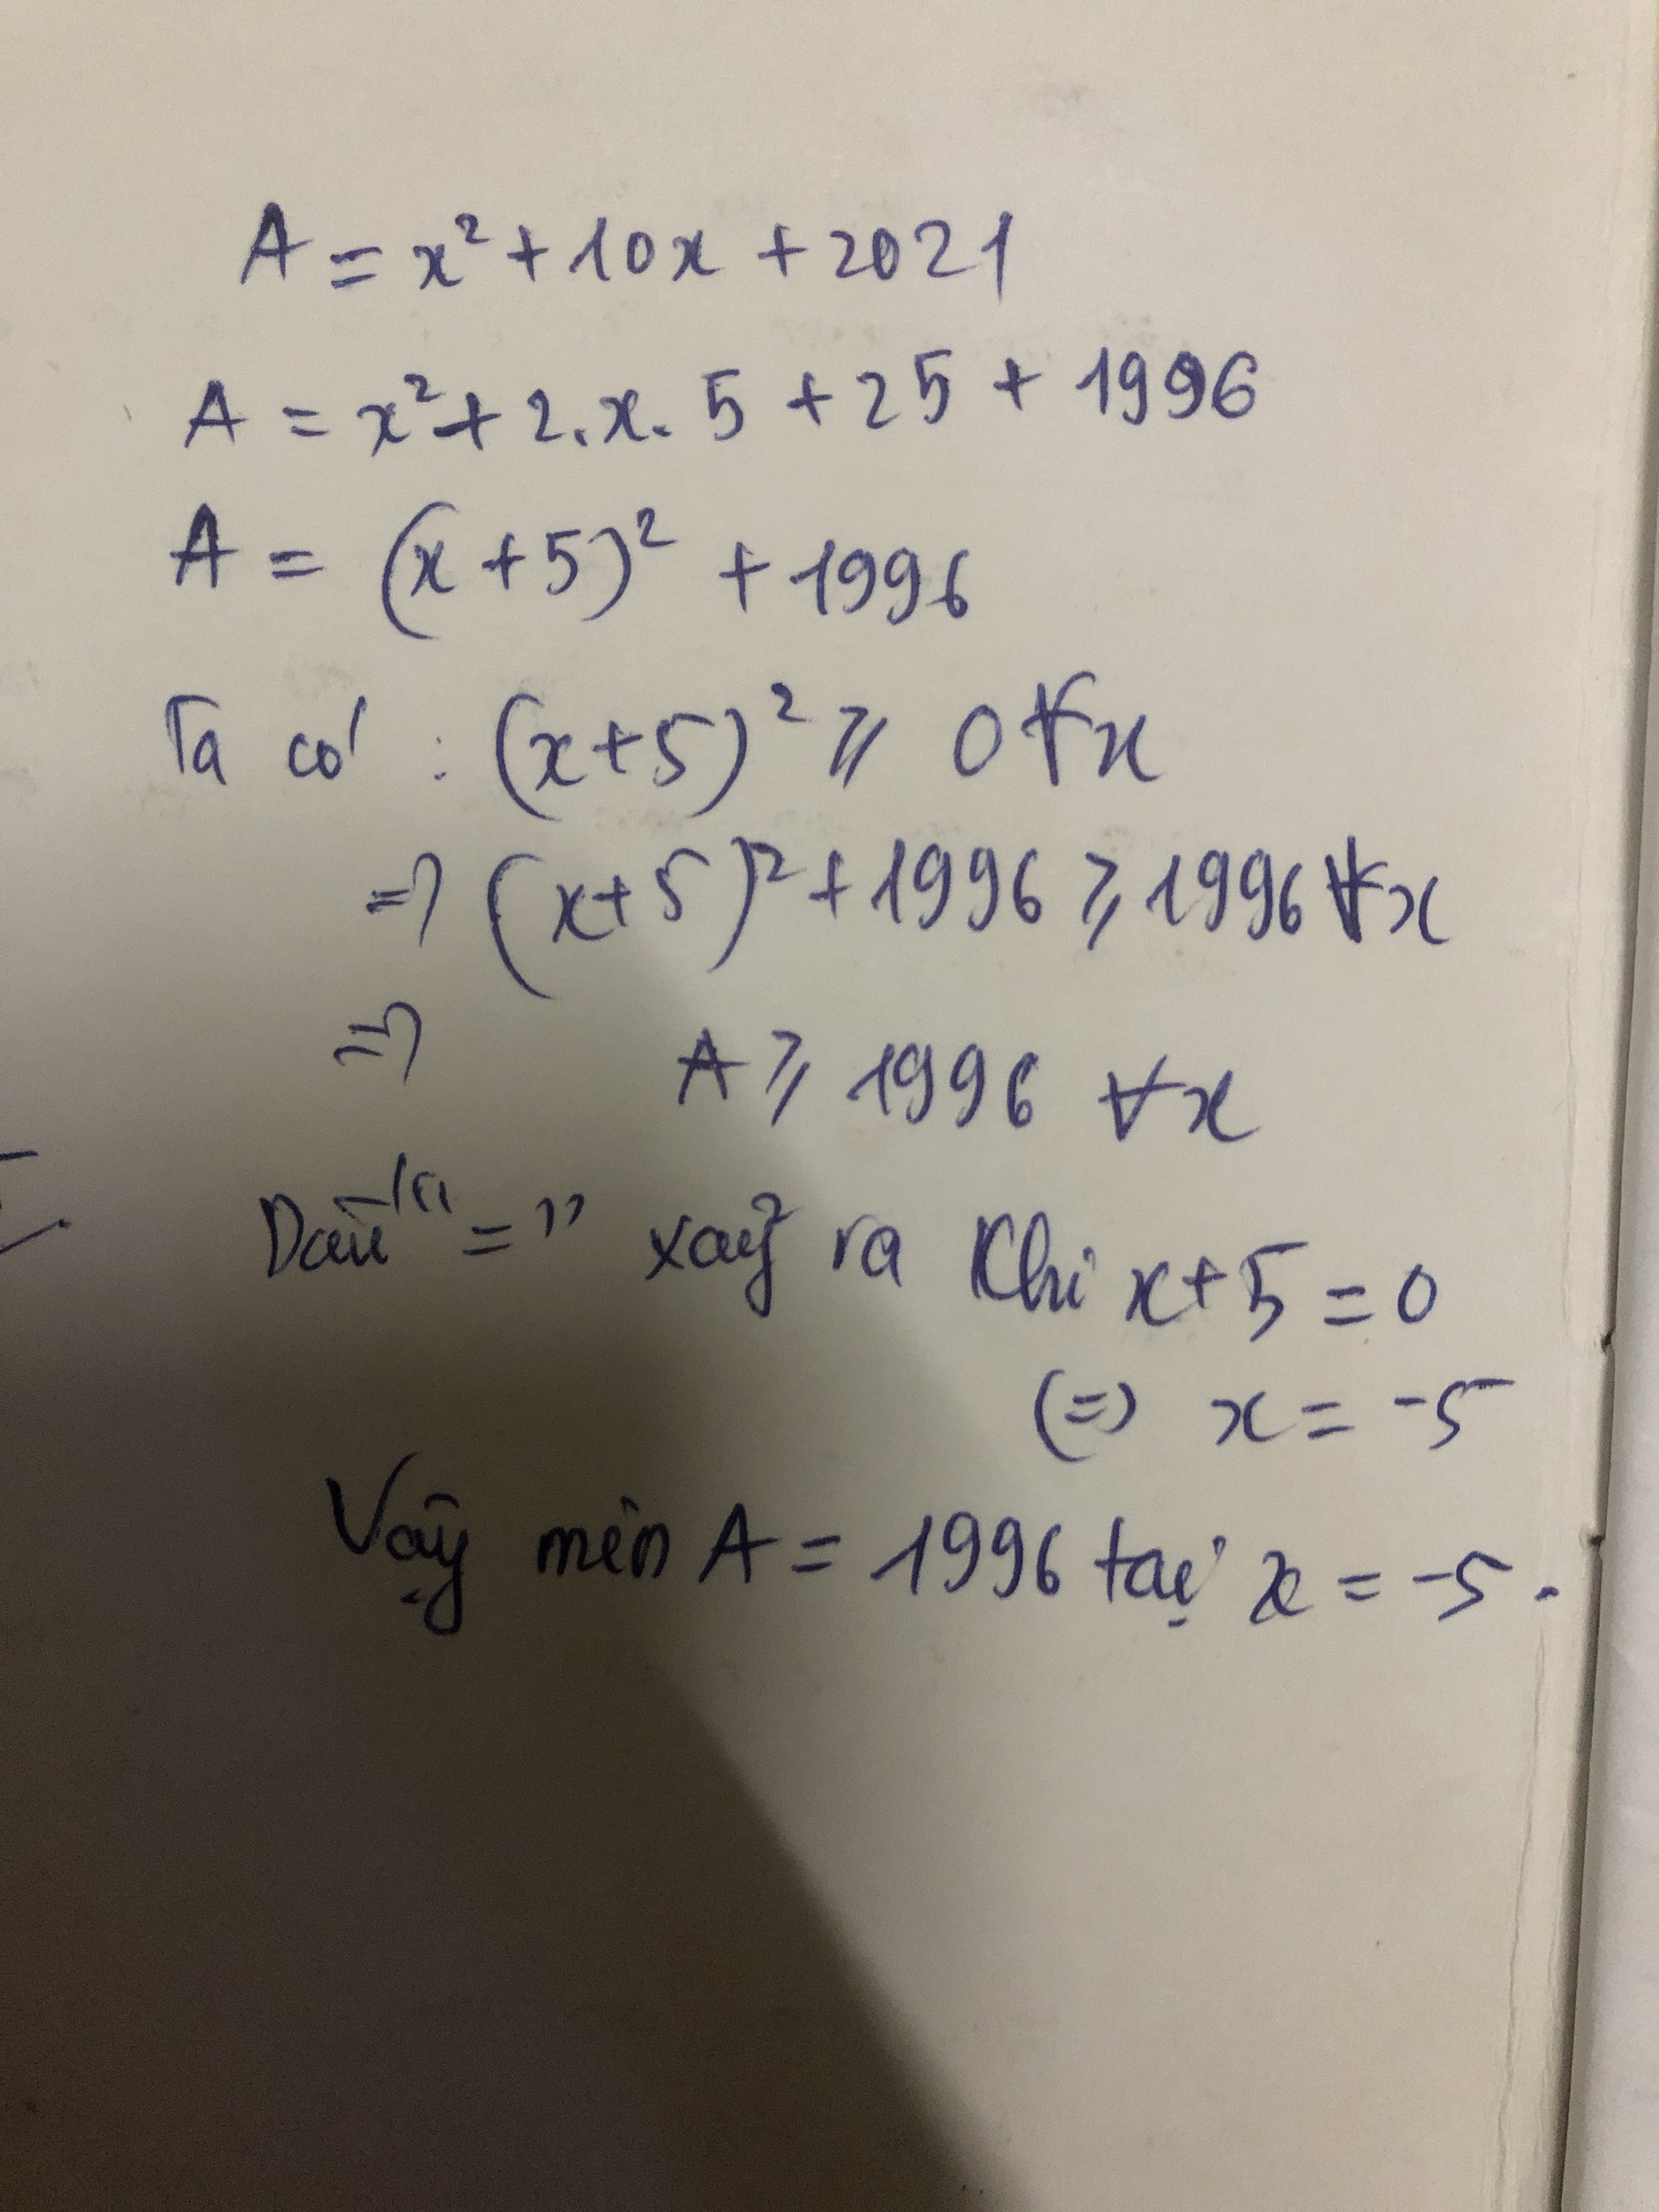 A = x² + 10x + 2021
A = x² + 2.x.5 + 25 + 1996
A = (x+5)² + 1996
Ta có : (x+5)² ⩾ 0 ∀x
=> (x+5)² + 1996 ⩾ 1996 ∀x
=> A ⩾ 1996 ∀x
Dấu "=" xảy ra khi x+5 = 0
(=) x = -5
Vậy min A = 1996 tại x = -5.